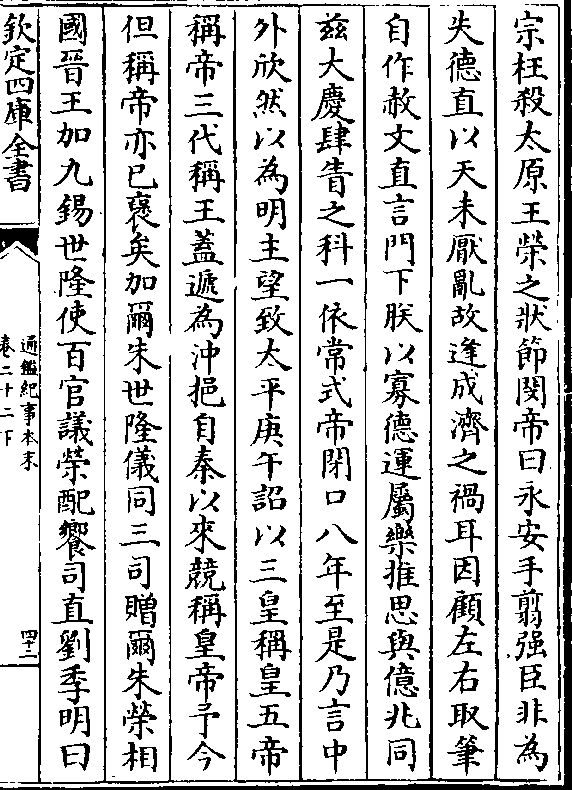 宗枉殺太原王榮之狀節閔帝曰永安手翦强臣非為
失德直以天未厭亂故逢成濟之禍耳因顧左右取筆
自作赦文直言門下朕以寡德運屬樂推思與億兆同
兹大慶肆眚之科一依常式帝閉口八年至是乃言中
外欣然以為明主望致太平庚午詔以三皇稱皇五帝
稱帝三代稱王蓋遞為沖挹自秦以來競稱皇帝予今
但稱帝亦已褒矣加爾朱世隆儀同三司贈爾朱榮相
國晉王加九錫世隆使百官議榮配饗司直劉季明曰
欽定四庫全書
通鑑紀事本末
卷二十二下
四十二